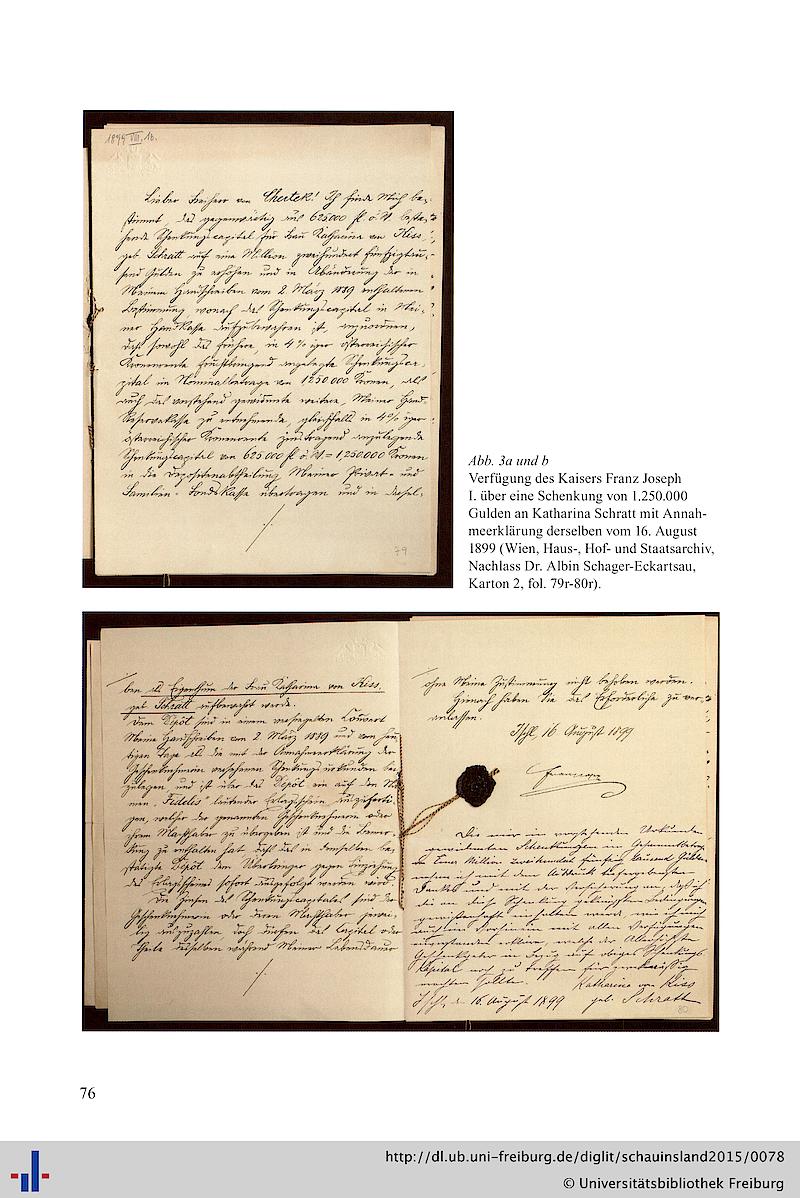 1899 VIII. 16.
Lieber Freiherr von Chertek! Ich finde Mich be-
stimmt, das gegenwärtig aus 625000 fl ö. W. beste-
hende Schenkungscapital für Frau Katharina von Kiss,
geb. Schratt auf eine Million zweihundert fünfzigtau-
send Gulden zu erhöhen und in Abänderung der in
Meinem Handschreiben vom 2. März 1889 enthaltenen
Bestimmung wonach das Schenkungscapital in Mei-
ner Handkasse aufzubewahren ist, anzuordnen,
daß sowohl das frühere, in 4% iger österreichischer
Kronenrente fruchtbringend angelegte Schenkungsca-
pital im Nominalbetrage von 1250.000 Kronen, als
auch das vorstehend gewidmete weitere, Meiner Hand-
Reservekasse zu entnehmende, gleichfalls in 4% iger
österreichischer Kronenrente zinstragend anzulegende
Schenkungscapital von 625000 fl ö. W. = 1,250.000 Kronen
in die Depositenabtheilung Meiner Privat- und
Familien-Fondskasse übertragen und in dersel-
79
Abb. 3a und b
Verfügung des Kaisers Franz Joseph
I. über eine Schenkung von 1.250.000
Gulden an Katharina Schratt mit Annah-
meerklärung derselben vom 16. August
1899 (Wien, Haus-, Hof- und Staatsarchiv,
Nachlass Dr. Albin Schager-Eckartsau,
Karton 2, fol. 79r-80r).
ben als Eigenthum der Frau Katharina von Kiss,
geb. Schratt aufbewahrt werde.
Dem Depôt sind in einem versiegelten Couvert
Meine Handschreiben vom 2. März 1889 und vom heu-
tigen Tage als die mit der Annahmeerklärung der
Geschenknehmerin versehenen Schenkungsurkunden bei-
zulegen, und ist über das Depôt ein auf den Na-
men „Fidelis" lautender Erlagsschein auszuferti-
gen, welcher der genannten Geschenknehmerin oder
ihrem Machthaber zu übergeben ist und die Bemer-
kung zu enthalten hat, daß das in demselben be-
stätigte Depôt dem Überbringer gegen Einziehung
des Erlagsscheines sofort ausgefolgt werden wird.
Die Zinsen des Schenkungscapitales sind der
Geschenknehmerin oder deren Machthaber jewei-
lig auszuzahlen, doch dürfen das Capital oder
Theile desselben während Meiner Lebensdauer
ohne Meine Zustimmung nicht behoben werden.
Hienach haben Sie das Erforderliche zu ver-
anlassen.
Ischl, 16 August 1899
Die mir in vorstehender Urkunde
gewidmeten Schenkungen im Gesammtbetrage
von Einer Million zweihundert fünfzig tausend Gulden
nehme ich mit dem Ausdruck tiefergebensten
Dankes und mit der Versicherung an, daß ich
die an diese Schenkung geknüpften Bedingungen
gewissenhaft einhalten werde, wie ich mich
auch im Vorhinein mit allen Verfügungen
einverstanden erkläre, welche der Allerhöchste
Geschenkgeber in Bezug auf obiges Schenkungs-
Kapital noch zu treffen für zweckmässig
erachten sollte. Katharina von Kiss
Ischl, den 16. August 1899 geb. Schratt
80
76
http://dl.ub.uni-freiburg.de/diglit/schauinsland2015/0078
© Universitätsbibliothek Freiburg